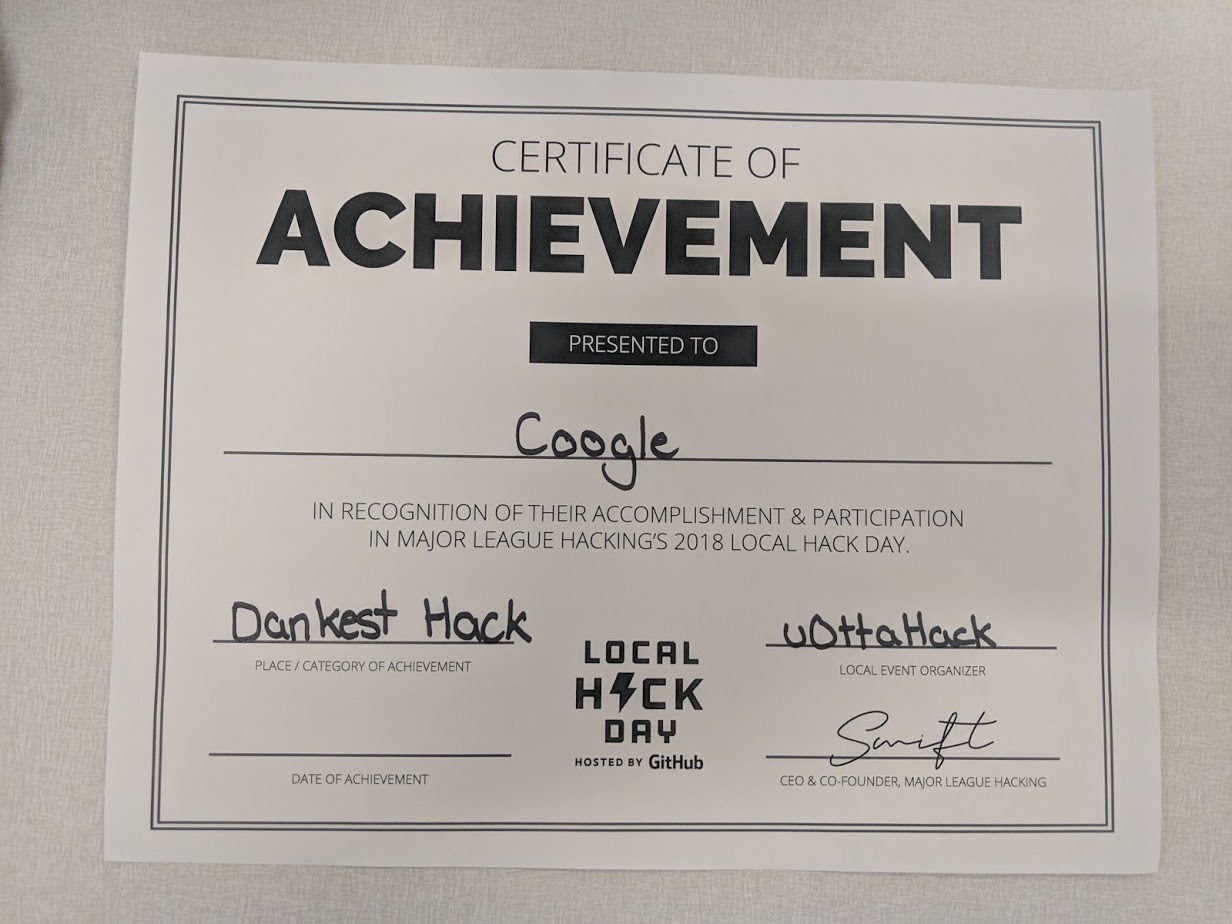 CERTIFICATE OF
ACHIEVEMENT
PRESENTED TO
Coogle
IN RECOGNITION OF THEIR ACCOMPLISHMENT & PARTICIPATION
IN MAJOR LEAGUE HACKING'S 2018 LOCAL HACK DAY.
Dankest Hack
PLACE / CATEGORY OF ACHIEVEMENT
uOttaHack
LOCAL EVENT ORGANIZER
LOCAL
H⚡CK
DAY
HOSTED BY GitHub
DATE OF ACHIEVEMENT
Swift
CEO & CO-FOUNDER, MAJOR LEAGUE HACKING